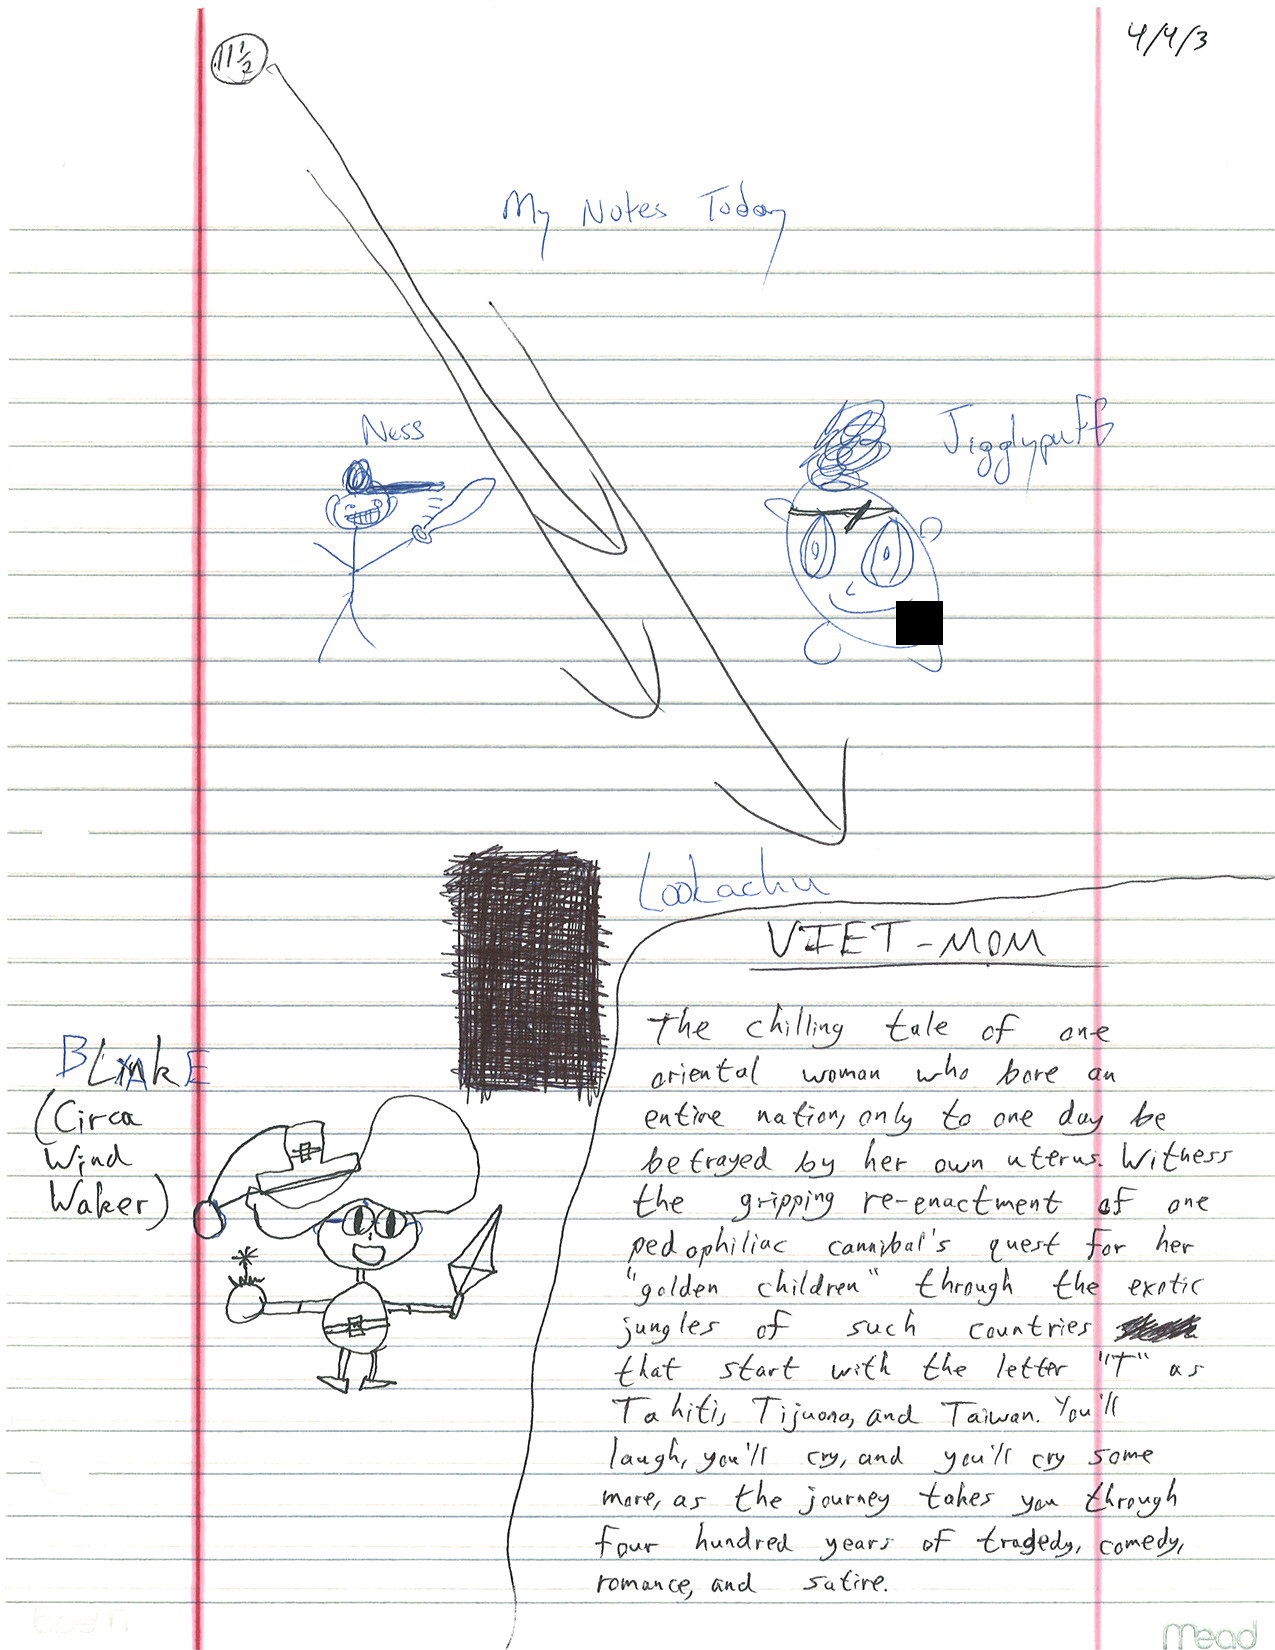 11 1/2
4/4/3
My Notes Today
Ness
Jigglypuff
Lookachu
VIET-MOM
The chilling tale of one
oriental woman who bore an
entire nation, only to one day be
betrayed by her own uterus. Witness
the gripping re-enactment of one
pedophiliac cannibal's quest for her
"golden children" through the exotic
jungles of such countries
that start with the letter "T" as
Tahiti, Tijuana, and Taiwan. You'll
laugh, you'll cry, and you'll cry some
more, as the journey takes you through
four hundred years of tragedy, comedy,
romance, and satire.
(Circa
Wind
Waker)
mead